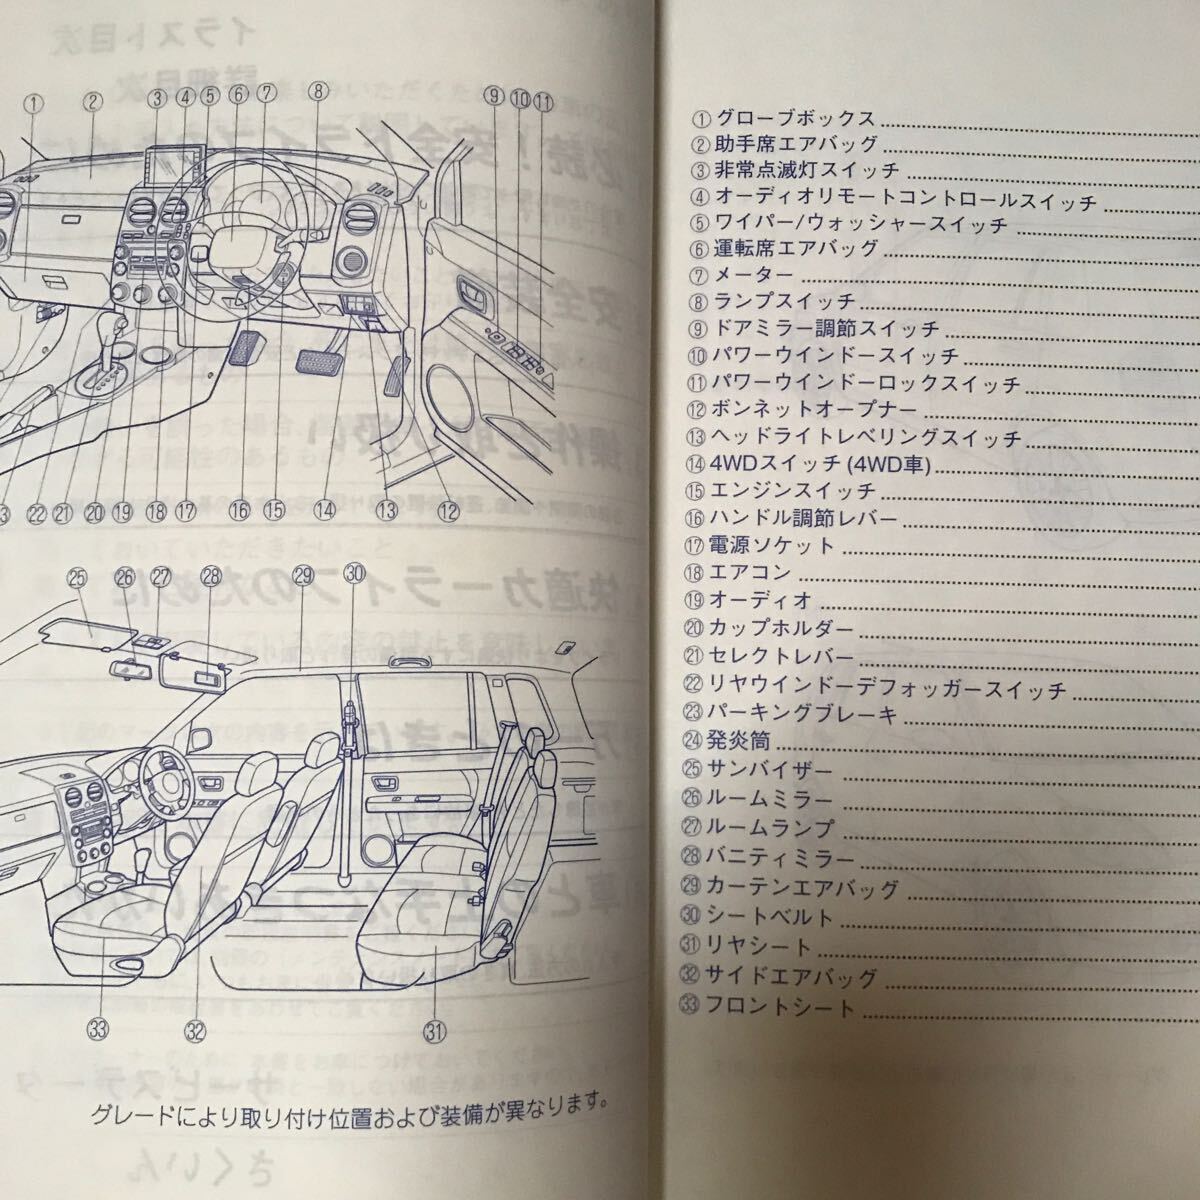 ① ② ③ ④ ⑤ ⑥ ⑦ ⑧ ⑨ ⑩ ⑪
㉒ ㉑ ⑳ ⑲ ⑱ ⑰ ⑯ ⑮ ⑭ ⑬ ⑫
㉕ ㉖ ㉗ ㉘ ㉙ ㉚
㉝ ㉜ ㉛
グレードにより取り付け位置および装備が異なります。
①グローブボックス
②助手席エアバッグ
③非常点滅灯スイッチ
④オーディオリモートコントロールスイッチ
⑤ワイパー/ウォッシャースイッチ
⑥運転席エアバッグ
⑦メーター
⑧ランプスイッチ
⑨ドアミラー調節スイッチ
⑩パワーウインドースイッチ
⑪パワーウインドーロックスイッチ
⑫ボンネットオープナー
⑬ヘッドライトレベリングスイッチ
⑭4WDスイッチ(4WD車)
⑮エンジンスイッチ
⑯ハンドル調節レバー
⑰電源ソケット
⑱エアコン
⑲オーディオ
⑳カップホルダー
㉑セレクトレバー
㉒リヤウインドーデフォッガースイッチ
㉓パーキングブレーキ
㉔発炎筒
㉕サンバイザー
㉖ルームミラー
㉗ルームランプ
㉘バニティミラー
㉙カーテンエアバッグ
㉚シートベルト
㉛リヤシート
㉜サイドエアバッグ
㉝フロントシート